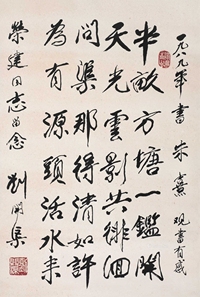 一九八九年书 朱熹 观书有感
半畝方塘一鑑開
天光雲影共徘徊
問渠那得清如許
為有源頭活水来
榮建同志留念
劉開渠